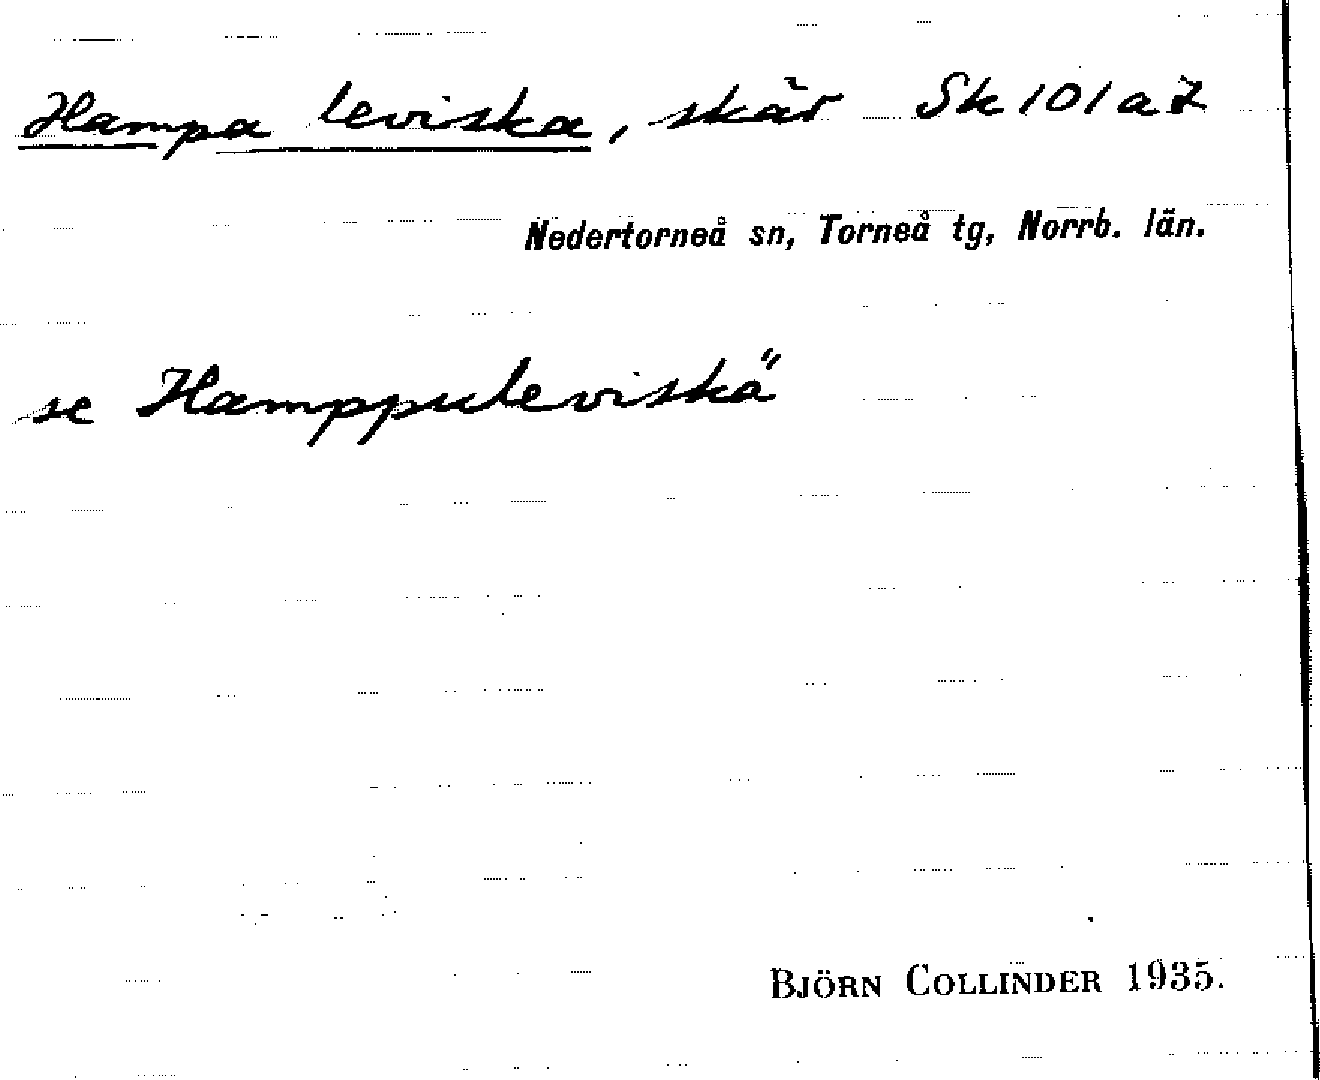 Hampa leviska, skär Sk 101 a 7
Nedertorneå sn, Torneå tg, Norrb. län.
se Hamppuleviskä
BJÖRN COLLINDER 1935.